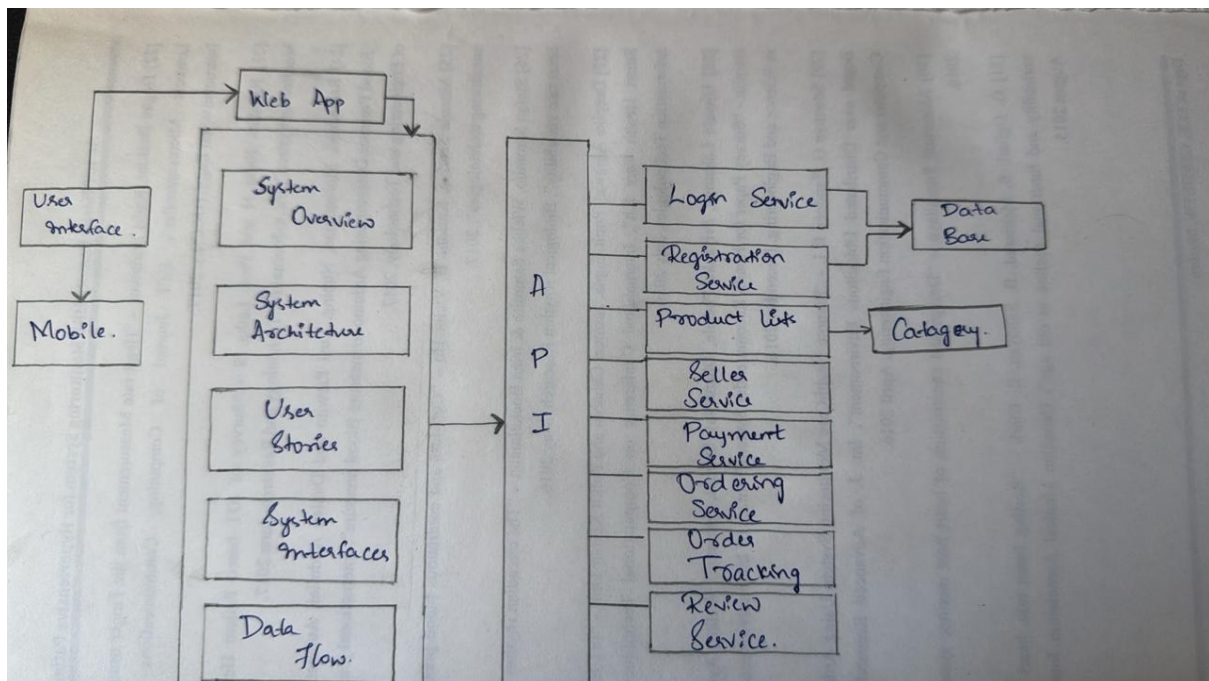 Web App
User
Interface.
Mobile.
System
Overview
System
Architcture
User
Stories
System
Interfaces
Data
Flow.
A
P
I
Login Service
Registration
Service
Product Lists
Seller
Service
Payment
Service
Ordering
Service
Order
Tracking
Review
Service.
Data
Base
Catagery.